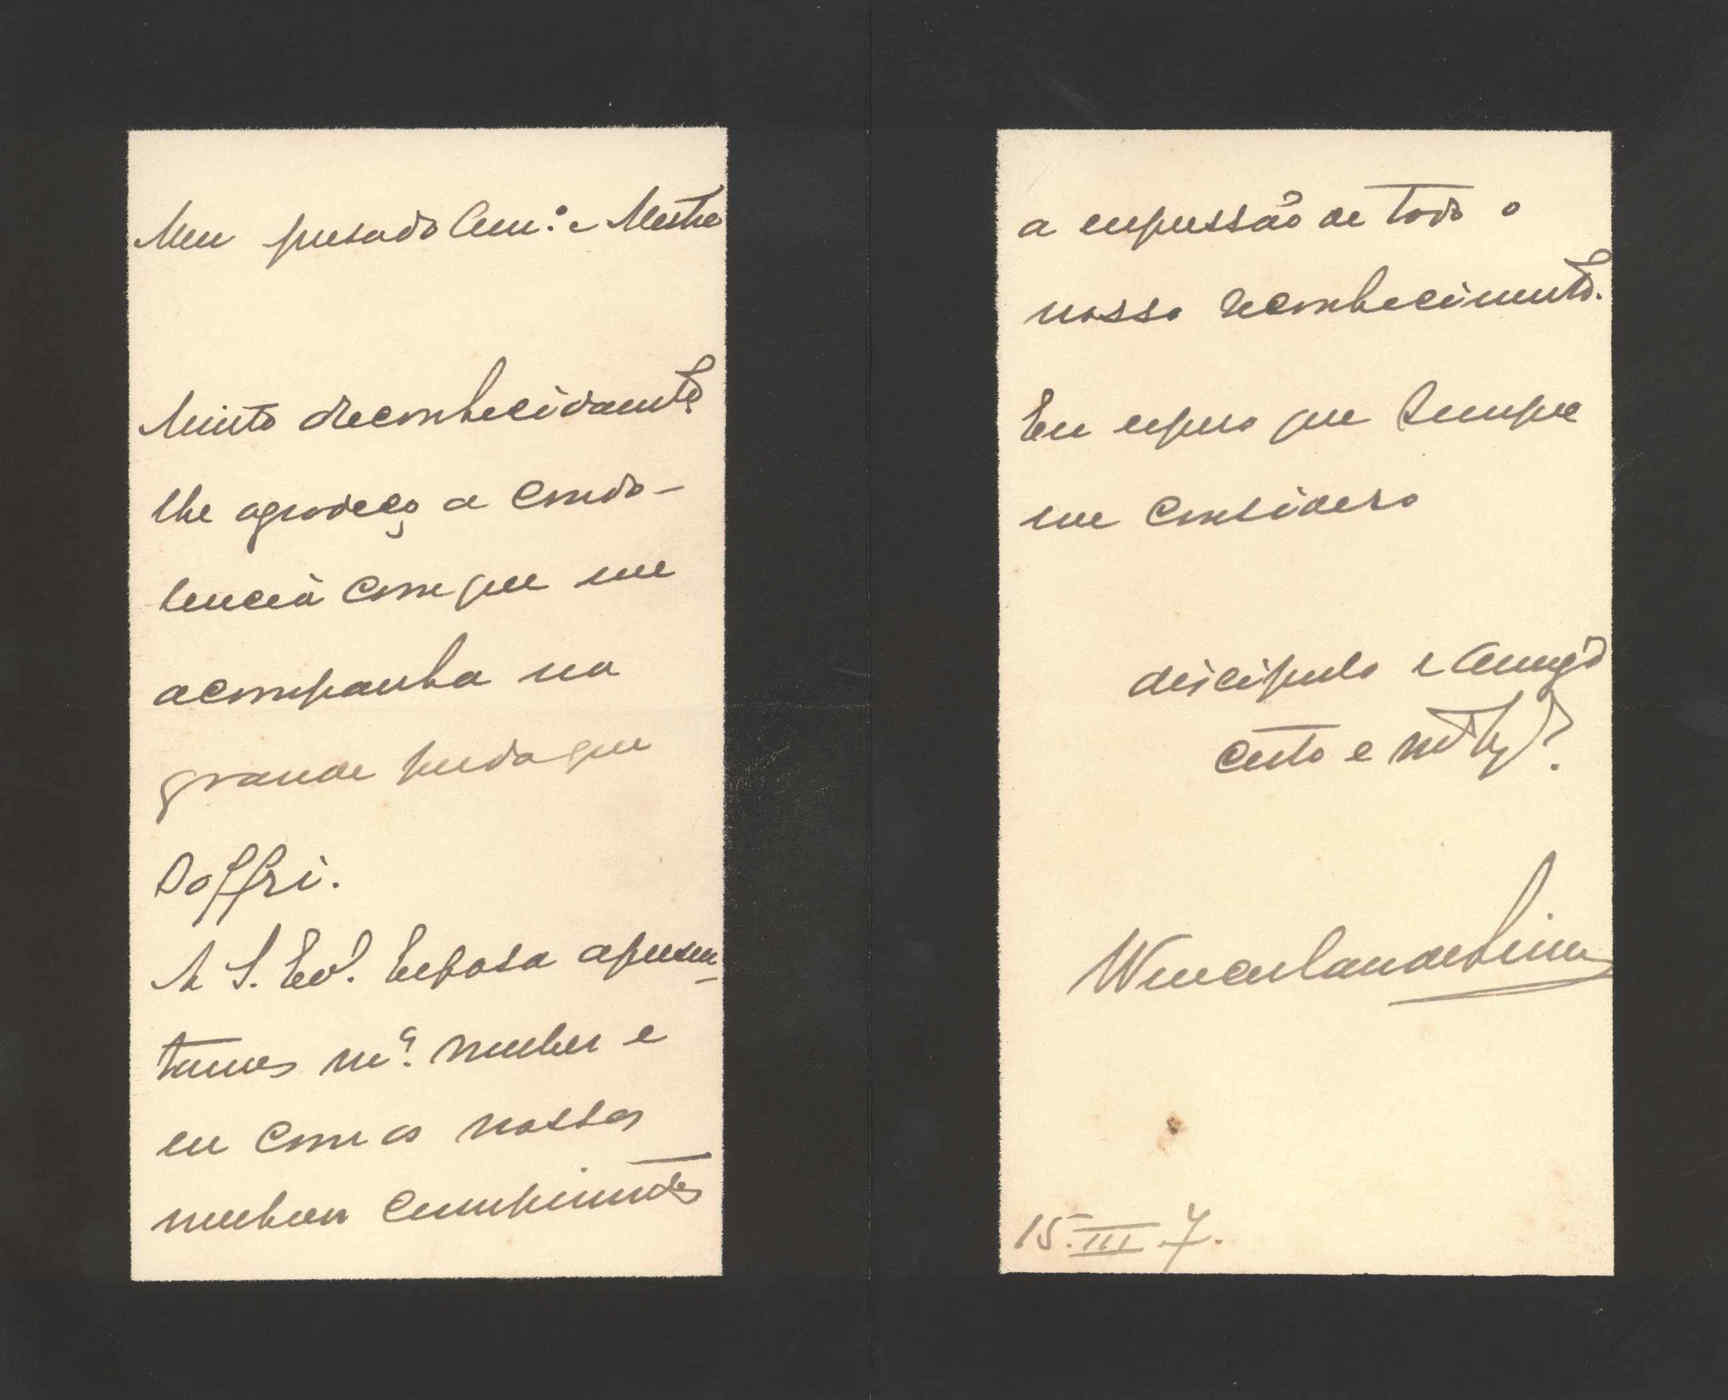 Meu presado Am.º e Mestre
Muito reconhecidamente
lhe agradeço a condo-
lencia com que me
acompanha na
grande perda que
soffri.
A S. Ex.ª Esposa apresen-
tamos m.ª mulher e
eu com os nossos
melhores cumprimentos
a expressão de todo o
nosso reconhecimento.
Eu espero que sempre
me considere
discipulo e amigo
certo e m.to
Wenceslau de Lima
15.III.7.